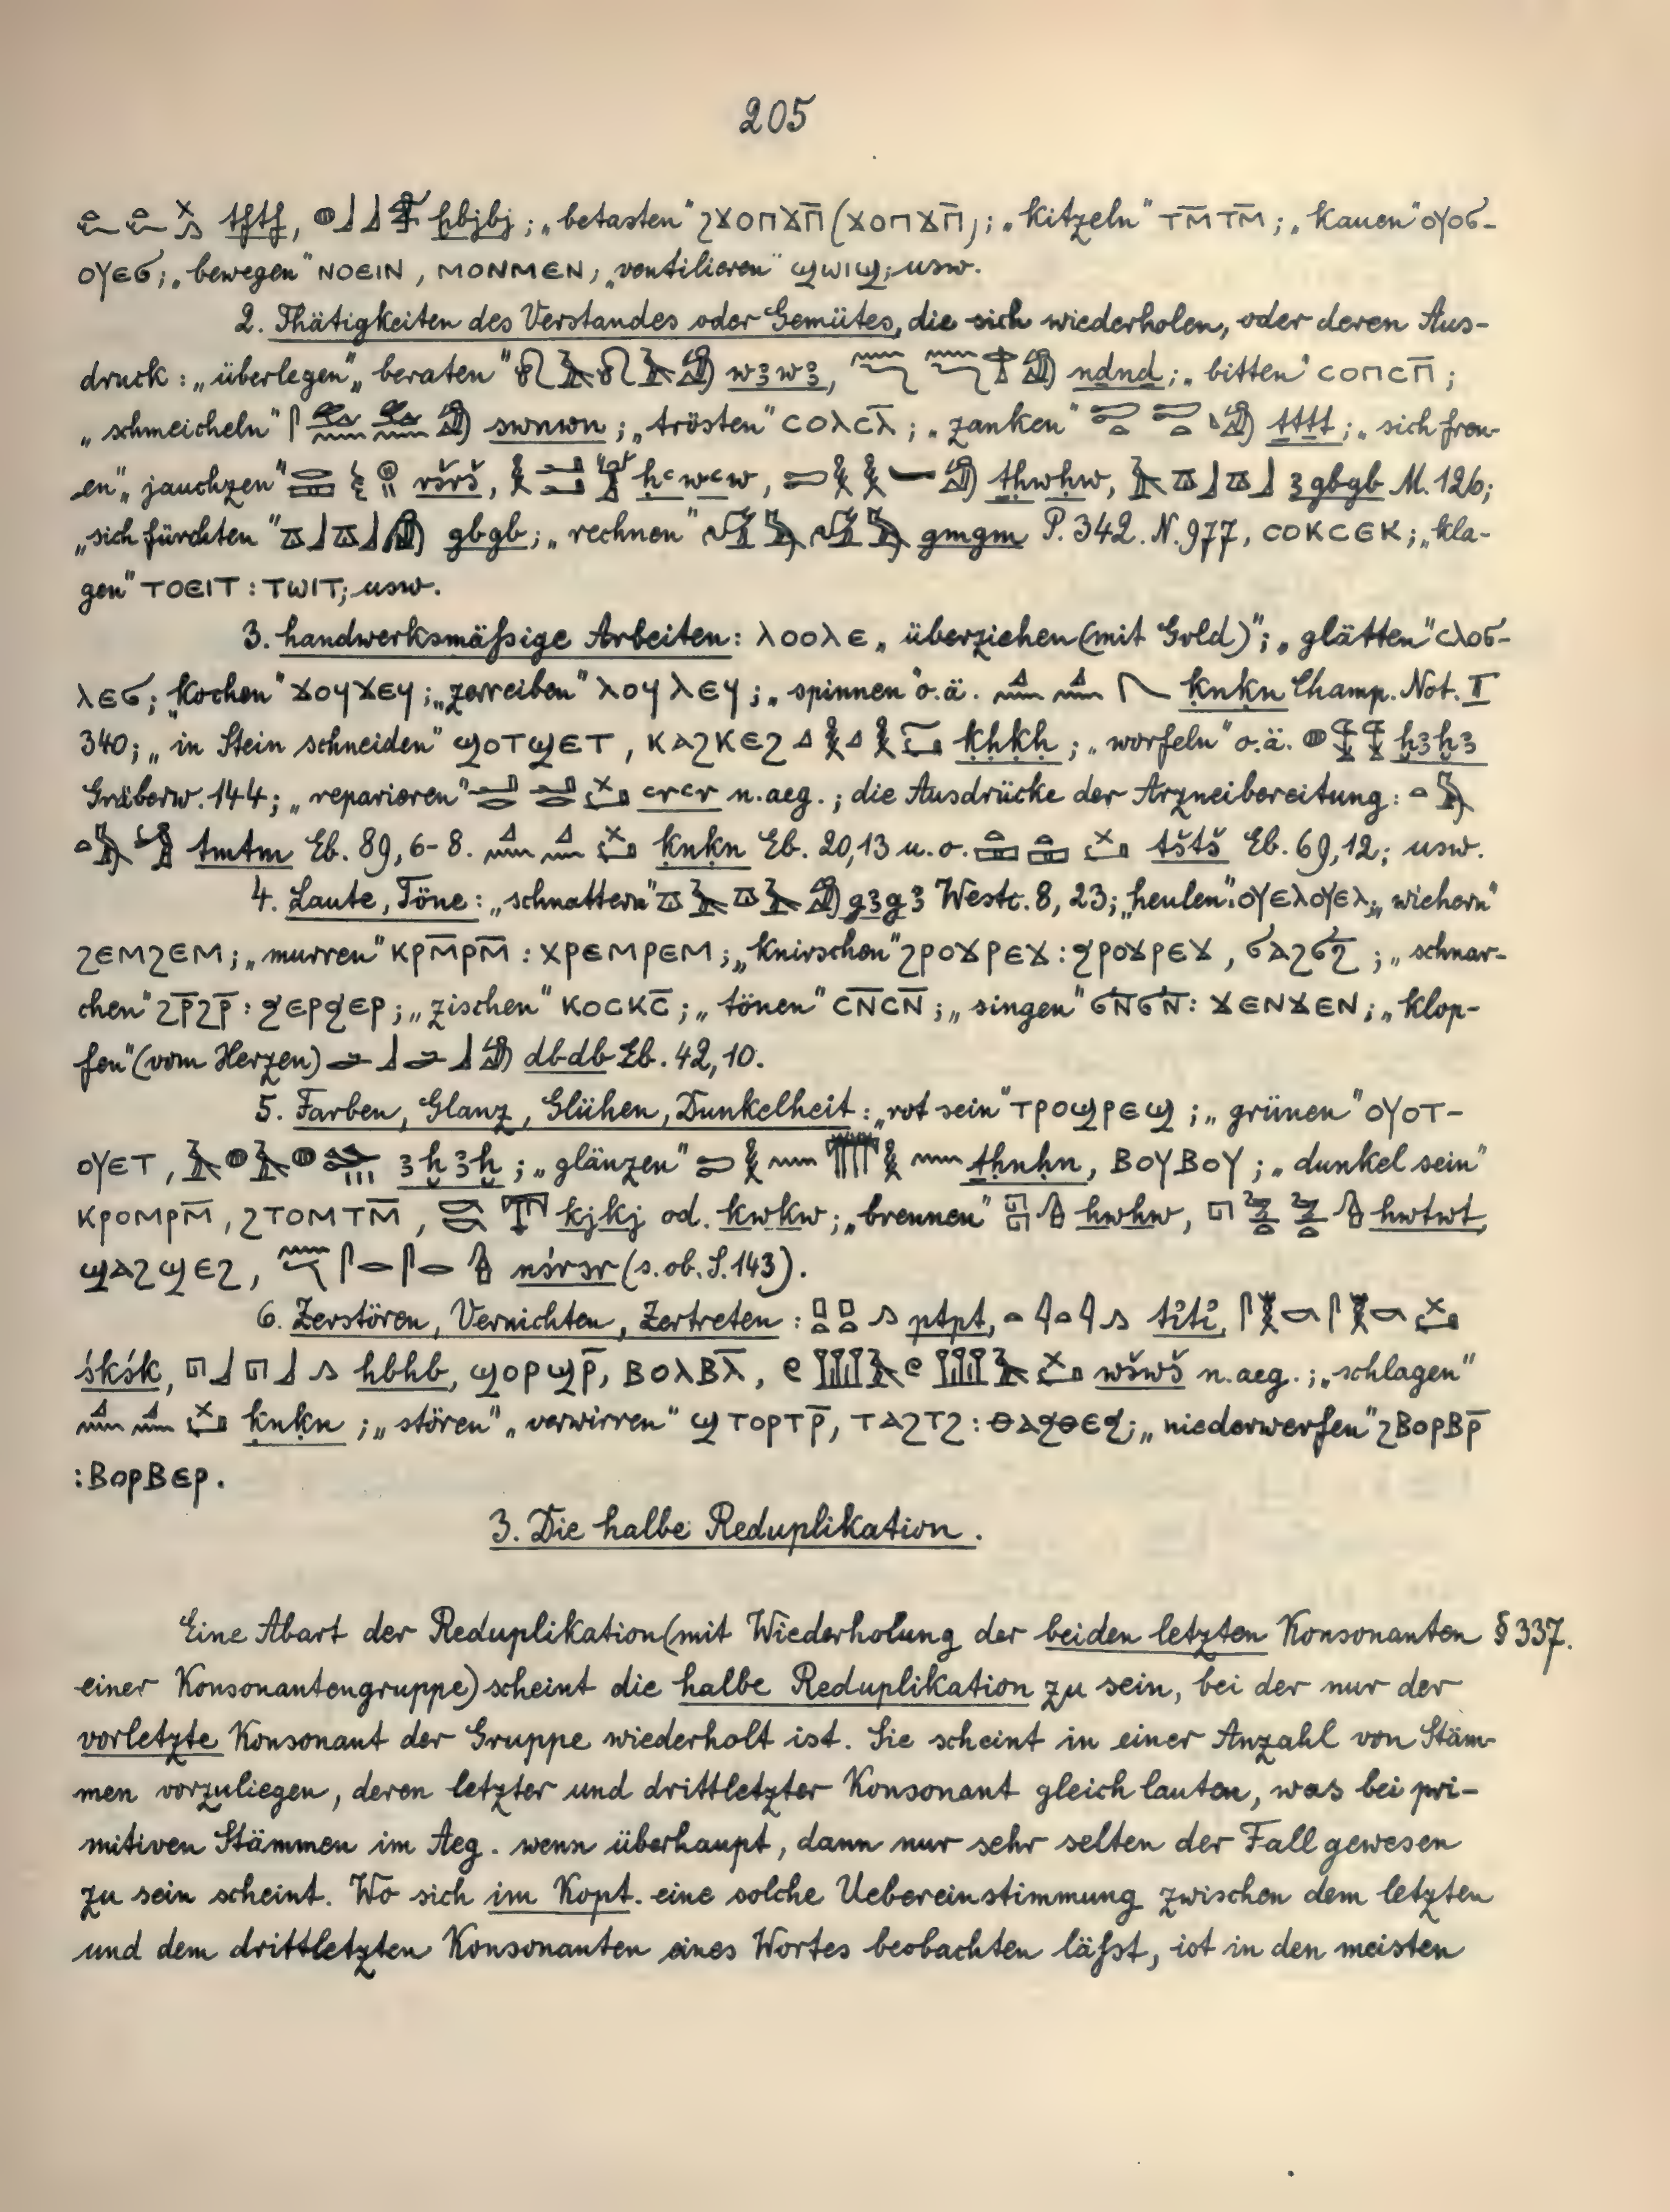 205
tftf, ḫbjbj; „betasten" ϩϫⲟⲡϫⲡ̅ (ϫⲟⲡϫⲡ̅); „kitzeln" ⲧⲙ̅ⲧⲙ̅; „kauen" ⲟⲩⲟϭ-
ⲟⲩⲉϭ; „bewegen" ⲛⲟⲉⲓⲛ, ⲙⲟⲛⲙⲉⲛ; „ventilieren" ϣⲱⲓϣ; usw.
2. Thätigkeiten des Verstandes oder Gemütes, die sich wiederholen, oder deren Aus-
druck: „überlegen„ beraten" wꜣwꜣ, ndnd; „bitten" ⲥⲟⲡⲥⲡ̅;
„schmeicheln" swnwn; „trösten" ⲥⲟⲗⲥⲗ̅; „zanken" ṯtṯt; „sich freu-
en„ jauchzen" ršrš, ḥꜥwꜥw, ṯḥwḥw, ꜣgbgb M. 126;
„sich fürchten" gbgb; „rechnen" gmgm P. 342. N. 977, ⲥⲟⲕⲥⲉⲕ; „kla-
gen" ⲧⲟⲉⲓⲧ : ⲧⲱⲓⲧ; usw.
3. handwerksmäßige Arbeiten: ⲗⲟⲟⲗⲉ „überziehen (mit Gold)"; „glätten" ⲥⲗⲟϭ-
ⲗⲉϭ; „kochen" ϫⲟϥϫⲉϥ; „zerreiben" ⲗⲟϥⲗⲉϥ; „spinnen" o. ä. ḳnḳn Champ. Not. II
340; „in Stein schneiden" ϣⲟⲧϣⲉⲧ, ⲕⲁϩⲕⲉϩ ḳḥḳḥ; „worfeln" o. ä. ḫꜣḫꜣ
Gräberw. 144; „reparieren" ꜥrꜥr n. aeg.; die Ausdrücke der Arzneibereitung:
tmtm Eb. 89, 6-8. ḳnḳn Eb. 20,13 u. o. tštš Eb. 69,12; usw.
4. Laute, Töne: „schnattern" gꜣgꜣ Westc. 8, 23; „heulen": ⲟⲩⲉⲗⲟⲩⲉⲗ; „wiehern"
ϩⲉⲙϩⲉⲙ; „murren" ⲕⲣⲙ̅ⲣⲙ̅ : ⲭⲣⲉⲙⲣⲉⲙ; „knirschen" ϩⲣⲟϫⲣⲉϫ : ϧⲣⲟϫⲣⲉϫ, ϭⲁϩϭϩ̅; „schnar-
chen" ϩⲣ̅ϩⲣ̅ : ϧⲉⲣϧⲉⲣ; „zischen" ⲕⲟⲥⲕⲥ̅; „tönen" ⲥⲛ̅ⲥⲛ̅; „singen" ϭⲛ̅ϭⲛ̅ : ϫⲉⲛϫⲉⲛ; „klop-
fen" (vom Herzen) dbdb Eb. 42, 10.
5. Farben, Glanz, Glühen, Dunkelheit: „rot sein" ⲧⲣⲟϣⲣⲉϣ; „grünen" ⲟⲩⲟⲧ-
ⲟⲩⲉⲧ, ꜣḫꜣḫ; „glänzen" ṯḥnḥn, ⲃⲟⲩⲃⲟⲩ; „dunkel sein"
ⲕⲣⲟⲙⲣⲙ̅, ϩⲧⲟⲙⲧⲙ̅, kjkj od. kwkw; „brennen" hwhw, hwtwt,
ϣⲁϩϣⲉϩ, nśrśr (s. ob. S. 143).
6. Zerstören, Vernichten, Zertreten: ptpt, titi,
śkśk, hbhb, ϣⲟⲣϣⲣ̅, ⲃⲟⲗⲃⲗ̅, wšwš n. aeg.; „schlagen"
ḳnḳn; „stören" „verwirren" ϣⲧⲟⲣⲧⲣ̅, ⲧⲁϩⲧϩ : ⲑⲁϧⲑⲉϧ; „niederwerfen" ϩⲃⲟⲣⲃⲣ̅
: ⲃⲟⲣⲃⲉⲣ.
3. Die halbe Reduplikation.
Eine Abart der Reduplikation (mit Wiederholung der beiden letzten Konsonanten § 337.
einer Konsonantengruppe) scheint die halbe Reduplikation zu sein, bei der nur der
vorletzte Konsonant der Gruppe wiederholt ist. Sie scheint in einer Anzahl von Stäm-
men vorzuliegen, deren letzter und drittletzter Konsonant gleich lauten, was bei pri-
mitiven Stämmen im Aeg. wenn überhaupt, dann nur sehr selten der Fall gewesen
zu sein scheint. Wo sich im Kopt. eine solche Uebereinstimmung zwischen dem letzten
und dem drittletzten Konsonanten eines Wortes beobachten läßt, ist in den meisten